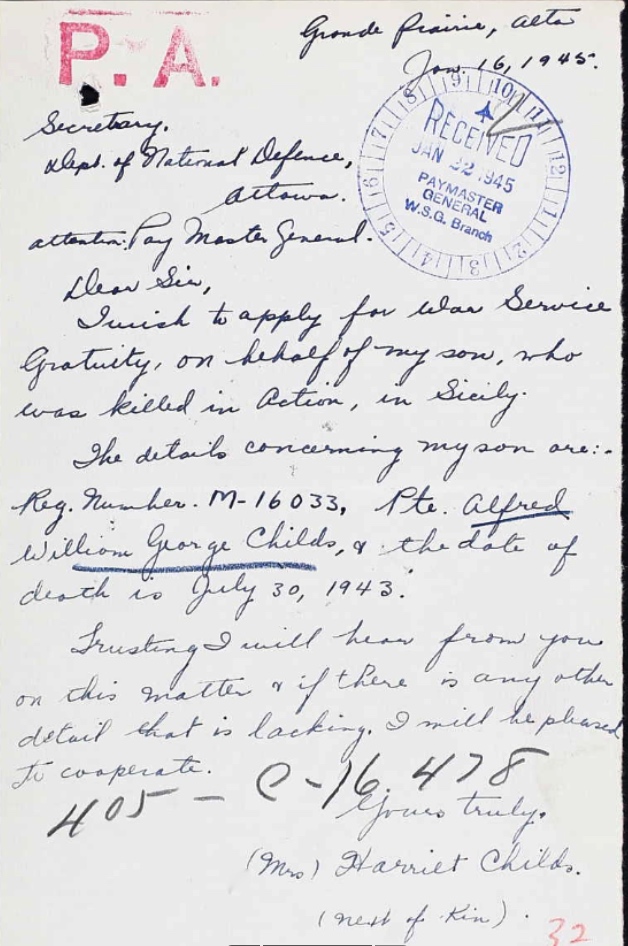 P. A.
Grande Prairie, Alta
Jan. 16, 1945.
Secretary,
Dept. of National Defence,
Ottawa.
attention: Pay Master General.
7 8 9 10 11 12 1 2 3 4 5 6
RECEIVED
JAN 22 1945
PAYMASTER
GENERAL
W.S.G. Branch
Dear Sir,
I wish to apply for War Service
Gratuity, on behalf of my son, who
was killed in Action, in Sicily.
The details concerning my son are:-
Reg. Number. M-16033, Pte. Alfred
William George Childs, & the date of
death is July 30, 1943.
Trusting I will hear from you
on this matter & if there is any other
detail that is lacking. I will be pleased
to cooperate.
405 - C-16478
Yours truly,
(Mrs) Harriet Childs.
(next of Kin).
32